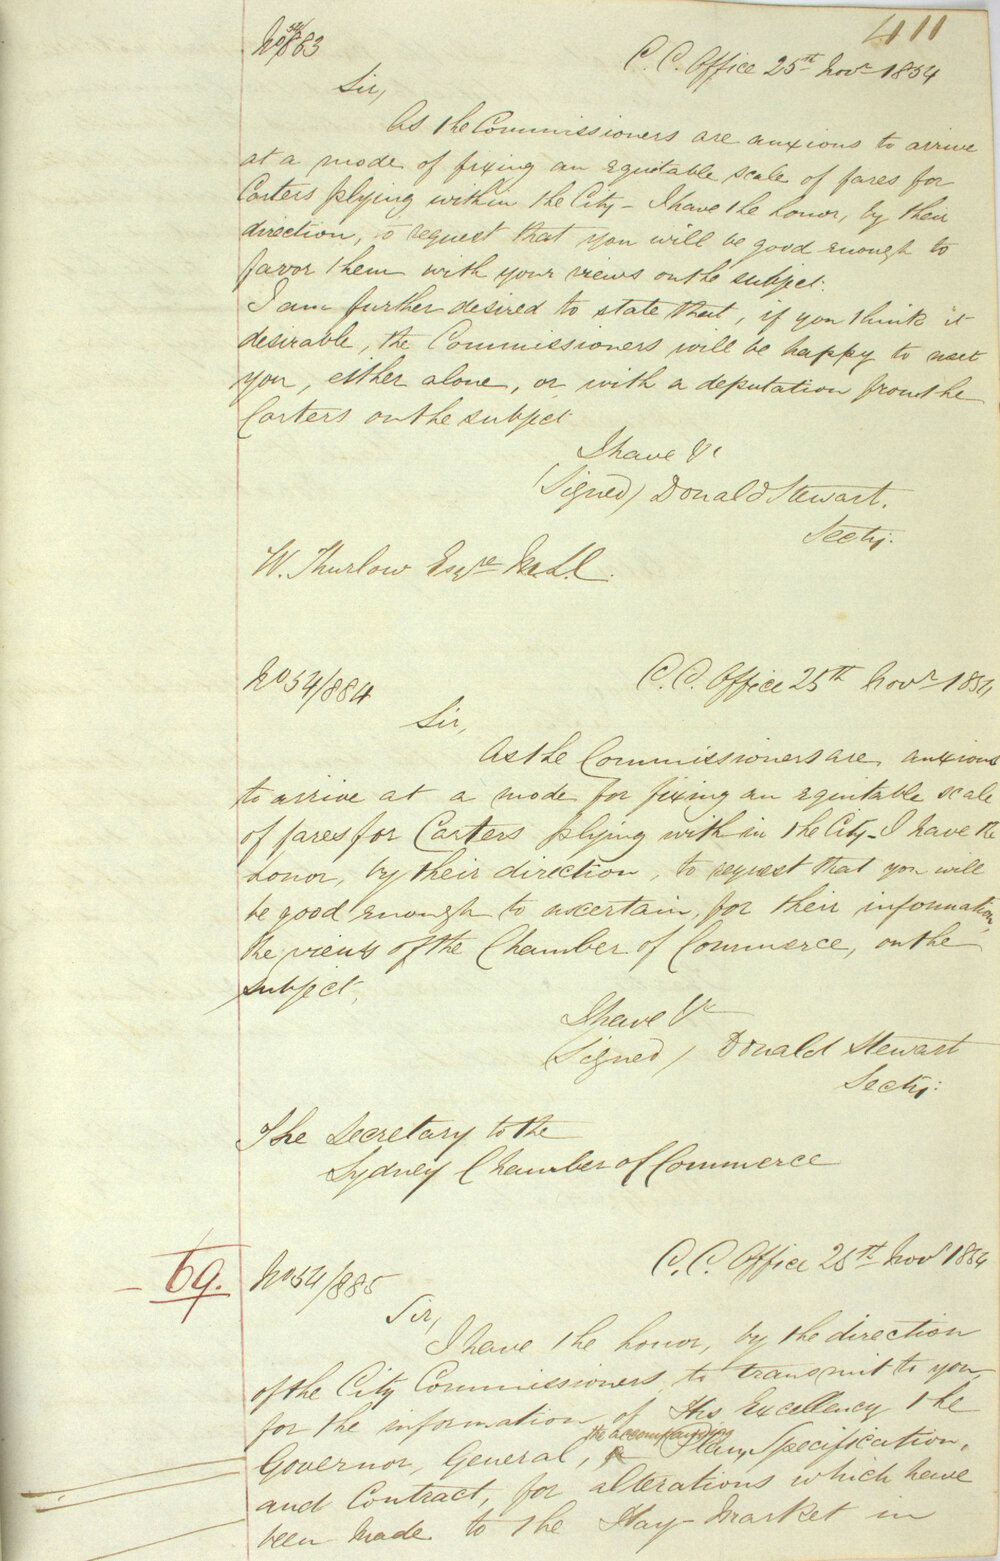 411
No 54/883
C. C. Office 25th Novr 1854
Sir,
As the Commissioners are anxious to arrive
at a mode of fixing an equitable scale of fares for
Carters plying within the City - I have the honor, by their
direction, to request that you will be good enough to
favor them with your views on the subject.
I am further desired to state that, if you think it
desirable, the Commissioners will be happy to meet
you, either alone, or with a deputation from the
Carters on the subject
I have &c
(Signed) Donald Stewart.
Secty.
W. Thurlow Esqre M.L.C.
No 54/884
C. C. Office 25th Novr 1854
Sir,
As the Commissioners are anxious
to arrive at a mode for fixing an equitable scale
of fares for Carters plying within the City - I have the
honor, by their direction, to request that you will
be good enough to ascertain, for their information,
the views of the Chamber of Commerce, on the
subject.
I have &c
(Signed) Donald Stewart
Secty:
The Secretary to the
Sydney Chamber of Commerce
69.
No 54/885
C. C. Office 25th Novr 1854
Sir,
I have the honor, by the direction
of the City Commissioners, to transmit to you,
for the information of His Excellency the
Governor, General, the accompanying Plan, Specification,
and Contract, for alterations which have
been made to the Hay-Market in